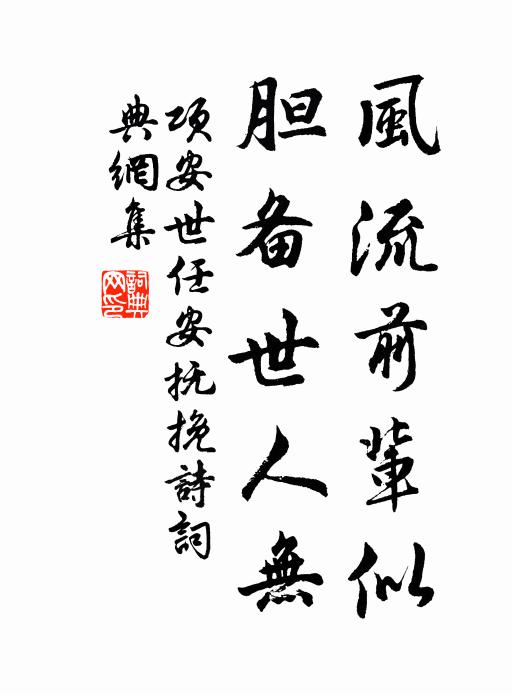 風流前輩似
胆备世人無
項安世任安抚挽詩詞
典網集
詞典網印